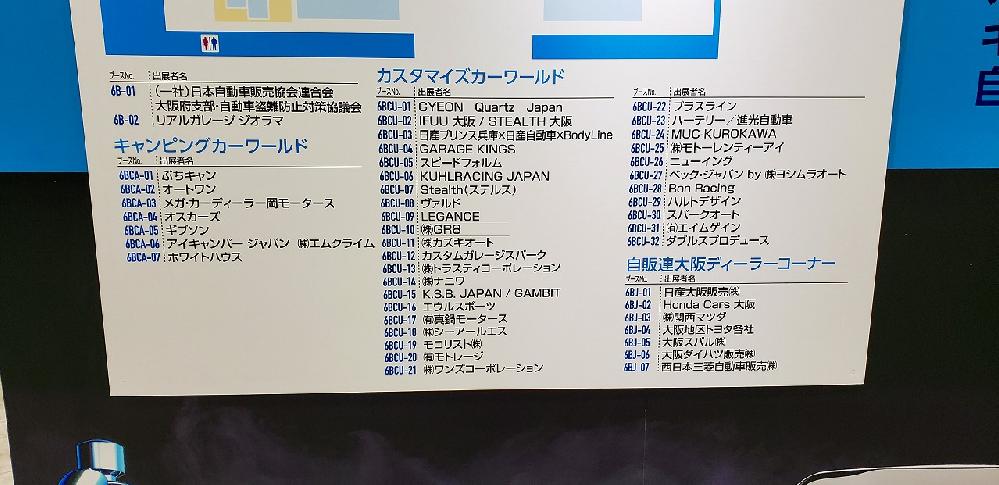 ブースNo. 出展者名
6B-01 (一社)日本自動車販売協会連合会
大阪府支部・自動車盗難防止対策協議会
6B-02 リアルガレージ ジオラマ
キャンピングカーワールド
ブースNo. 出展者名
6BCA-01 ぷちキャン
6BCA-02 オートワン
6BCA-03 メガ・カーディーラー岡モータース
6BCA-04 オスカーズ
6BCA-05 ギブソン
6BCA-06 アイキャンパー ジャパン ㈱エムクライム
6BCA-07 ホワイトハウス
カスタマイズカーワールド
ブースNo. 出展者名
6BCU-01 GYEON Quartz Japan
6BCU-02 IFUU 大阪 / STEALTH 大阪
6BCU-03 日産プリンス兵庫×日産自動車×BodyLine
6BCU-04 GARAGE KINGS
6BCU-05 スピードフォルム
6BCU-06 KUHLRACING JAPAN
6BCU-07 Stealth(ステルス)
6BCU-08 ヴァルド
6BCU-09 LEGANCE
6BCU-10 ㈱GR8
6BCU-11 ㈱カズキオート
6BCU-12 カスタムガレージスパーク
6BCU-13 ㈱トラスティコーポレーション
6BCU-14 ㈱ナニワ
6BCU-15 K.S.B. JAPAN / GAMBIT
6BCU-16 エウルスポーツ
6BCU-17 ㈲真鍋モータース
6BCU-18 ㈱シーアールエス
6BCU-19 モコリスト㈱
6BCU-20 ㈲モトレージ
6BCU-21 ㈱ワンズコーポレーション
ブースNo. 出展者名
6BCU-22 プラスライン
6BCU-23 ハーテリー／進光自動車
6BCU-24 MUC KUROKAWA
6BCU-25 ㈱モトーレンティーアイ
6BCU-26 ニューイング
6BCU-27 ベック・ジャパン by ㈱ヨシムラオート
6BCU-28 Ron Racing
6BCU-29 ハルトデザイン
6BCU-30 スパークオート
6BCU-31 ㈲エイムゲイン
6BCU-32 ダブルスプロデュース
自販連大阪ディーラーコーナー
ブースNo. 出展者名
6BJ-01 日産大阪販売㈱
6BJ-02 Honda Cars 大阪
6BJ-03 ㈱関西マツダ
6BJ-04 大阪地区トヨタ各社
6BJ-05 大阪スバル㈱
6BJ-06 大阪ダイハツ販売㈱
6BJ-07 西日本三菱自動車販売㈱